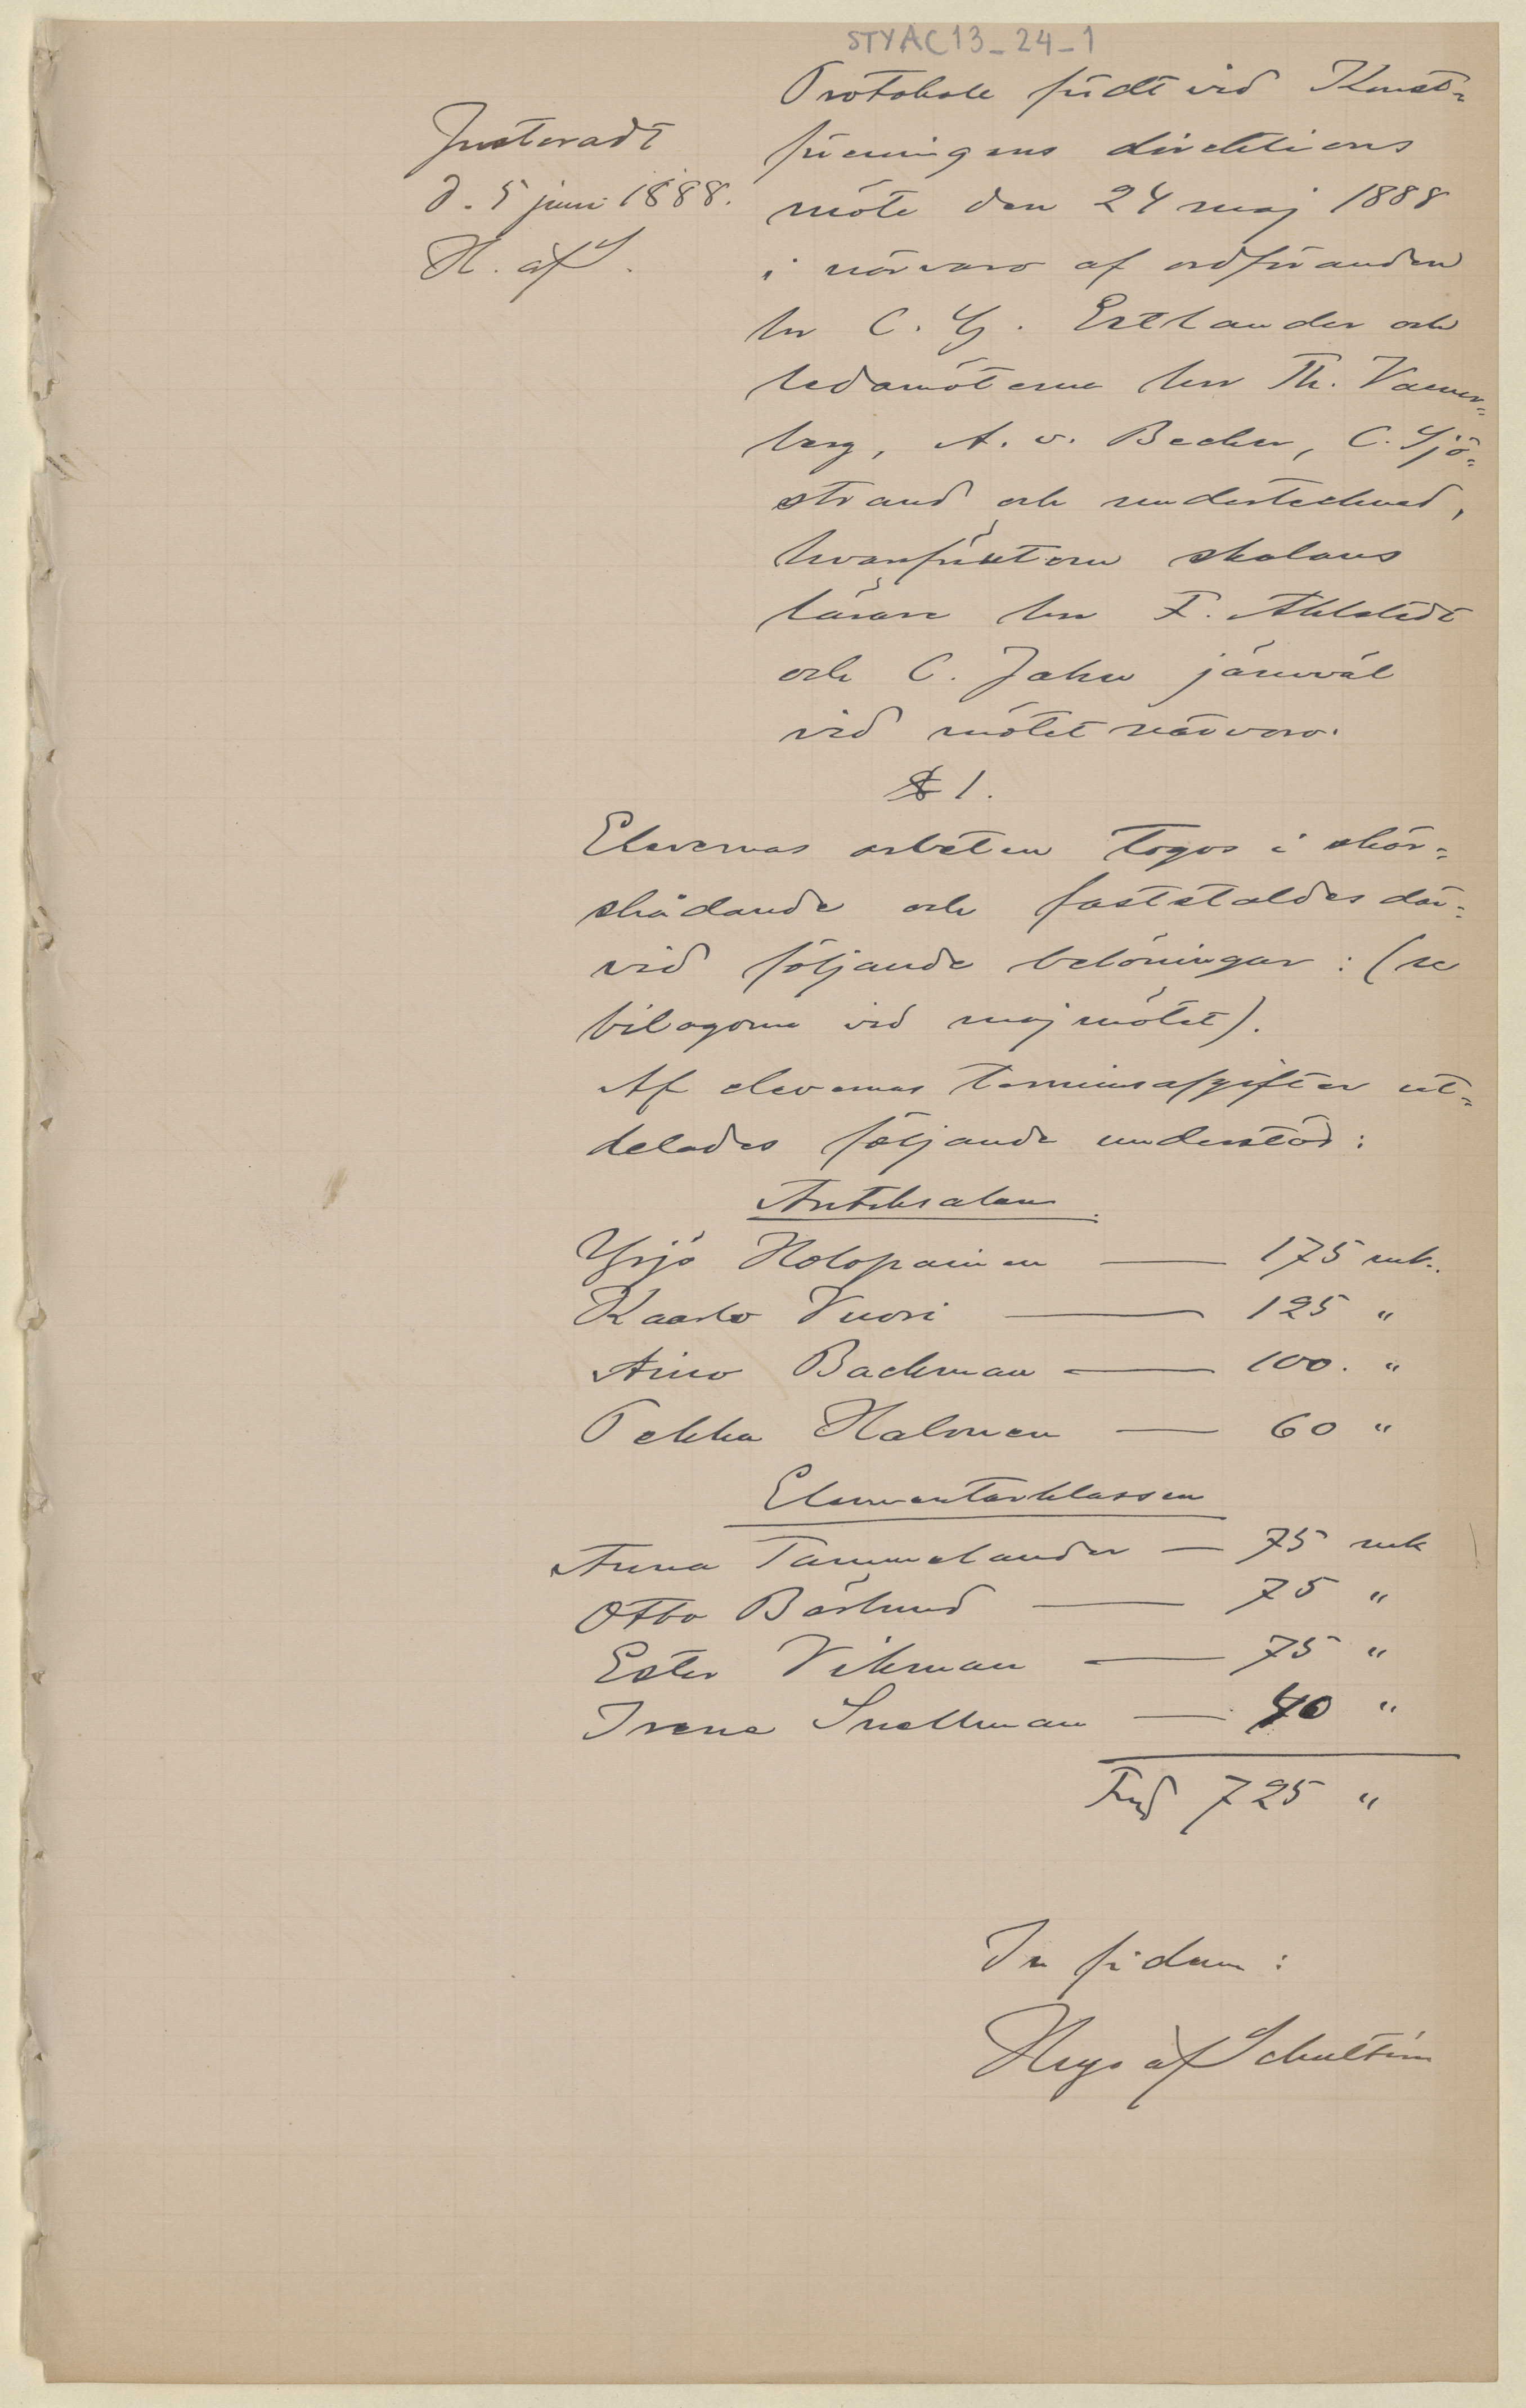 STYAC13_24_1
Justeradt
d. 5 juni 1888.
H. af S.
Protokoll fördt vid Konst=
föreningens direktions
möte den 24 maj 1888
i närvaro af ordföranden
hr C. G. Estlander och
ledamöterna hrr Th. Vaener=
berg, A. v. Becker, C. Sjö=
strand och undertecknad,
hvarförutom skolans
lärare hrr F. Ahlstedt
och C. Jahn jämväl
vid mötet närvoro.
§ 1.
Elevernas arbeten togos i skär=
skådande och fastställdes där=
vid följande belöningar: (se
bilagorna vid majmötet).
Af elevernas terminsafgifter ut=
delades följande understöd:
Antiksalen.
Yrjö Holopainen — 175 mk.
Kaarlo Vuori — 125 "
Aino Backman — 100. "
Pekka Halonen — 60 "
Elementarklassen
Anna Tammelander — 75 mk
Otto Bärlund — 75 "
Ester Vikman — 75 "
Irene Snellman — 40 "
Fmk 725 "
In fidem:
Hugo af Schultén